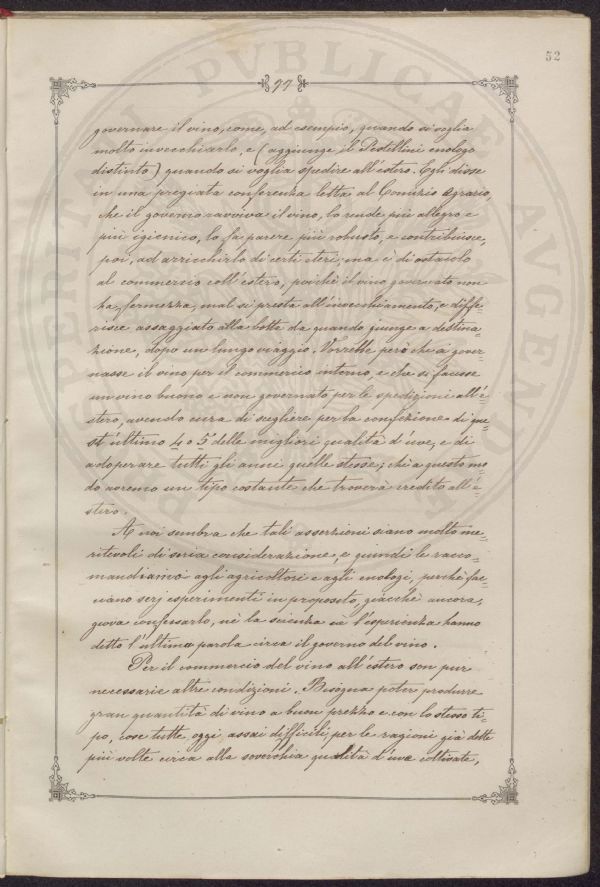 52
97
governare il vino, come, ad esempio, quando si voglia
molto invecchiarlo, e (aggiunge il Pestellini enologo
distinto) quando si voglia spedire all'estero. Egli disse
in una pregiata conferenza letta al Comizio Agrario,
che il governo ravviva il vino, lo rende più allegro e
più igienico, lo fa parere più robusto, e contribuisce,
poi, ad arricchirlo di certi eteri; ma è di ostacolo
al commercio coll'estero, poichè il vino governato non
ha fermezza, mal si presta all'invecchiamento, e diffe=
risce assaggiato alla botte da quando giunge a destina=
zione, dopo un lungo viaggio. Vorrebbe però che si gover=
nasse il vino per il commercio interno, e che si facesse
un vino buono e non governato per le spedizioni all'e=
stero, avendo cura di scegliere per la confezione di que=
st'ultimo 4 o 5 delle migliori qualità d'uve, e di
adoperare tutti gli anni quelle stesse; chè a questo mo=
do avremo un tipo costante che troverà credito all'e=
stero.
A noi sembra che tali asserzioni siano molto me=
ritevoli di seria considerazione, e quindi le racco=
mandiamo agli agricoltori e agli enologi, perchè fac=
ciano serj esperimenti in proposito, giacchè ancora,
giova confessarlo, nè la scienza nè l'esperienza hanno
detto l'ultima parola circa il governo del vino.
Per il commercio del vino all'estero son pur
necessarie altre condizioni. Bisogna poter produrre
gran quantità di vino a buon prezzo e con lo stesso ti=
po, cose tutte, oggi, assai difficili per le ragioni già dette
più volte circa alla soverchia qualità d'uve coltivate,
PUBLICAE
AUGENDO